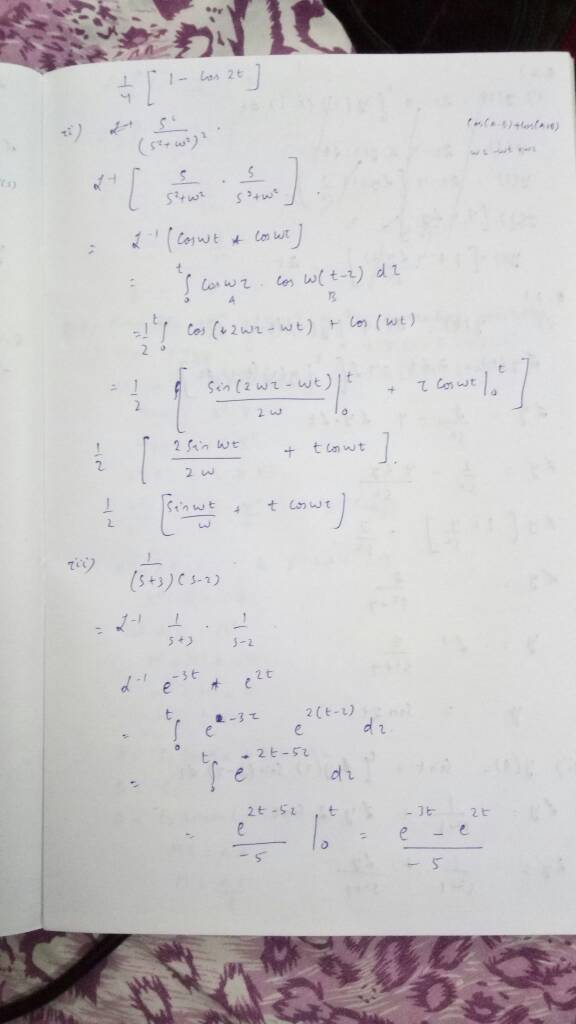 1/4 [ 1 - cos 2t ]
ii) L⁻¹ s²/(s²+w²)² .
cos(A-B)+cos(A+B)
L⁻¹ [ s/(s²+w²) · s/(s²+w²) ] .
= L⁻¹ (coswt * coswt)
= ∫₀ᵗ cos wτ . cos w(t-τ) dτ
A B
= 1/2 ∫₀ᵗ cos (+2wτ - wt) + cos (wt)
= 1/2 [ sin(2wτ - wt)/2w |₀ᵗ + τ coswt |₀ᵗ ]
1/2 [ 2 sin wt/2w + t coswt ] .
1/2 [ sin wt/w + t coswτ ]
iii) 1/((s+3)(s-2))
= L⁻¹ 1/(s+3) · 1/(s-2)
L⁻¹ e^(-3t) * e^(2t)
= ∫₀ᵗ e^(-3τ) e^(2(t-τ)) dτ .
= ∫₀ᵗ e^(2t-5τ) dτ
= e^(2t-5τ)/-5 |₀ᵗ = (e^(-3t) - e^(2t))/-5